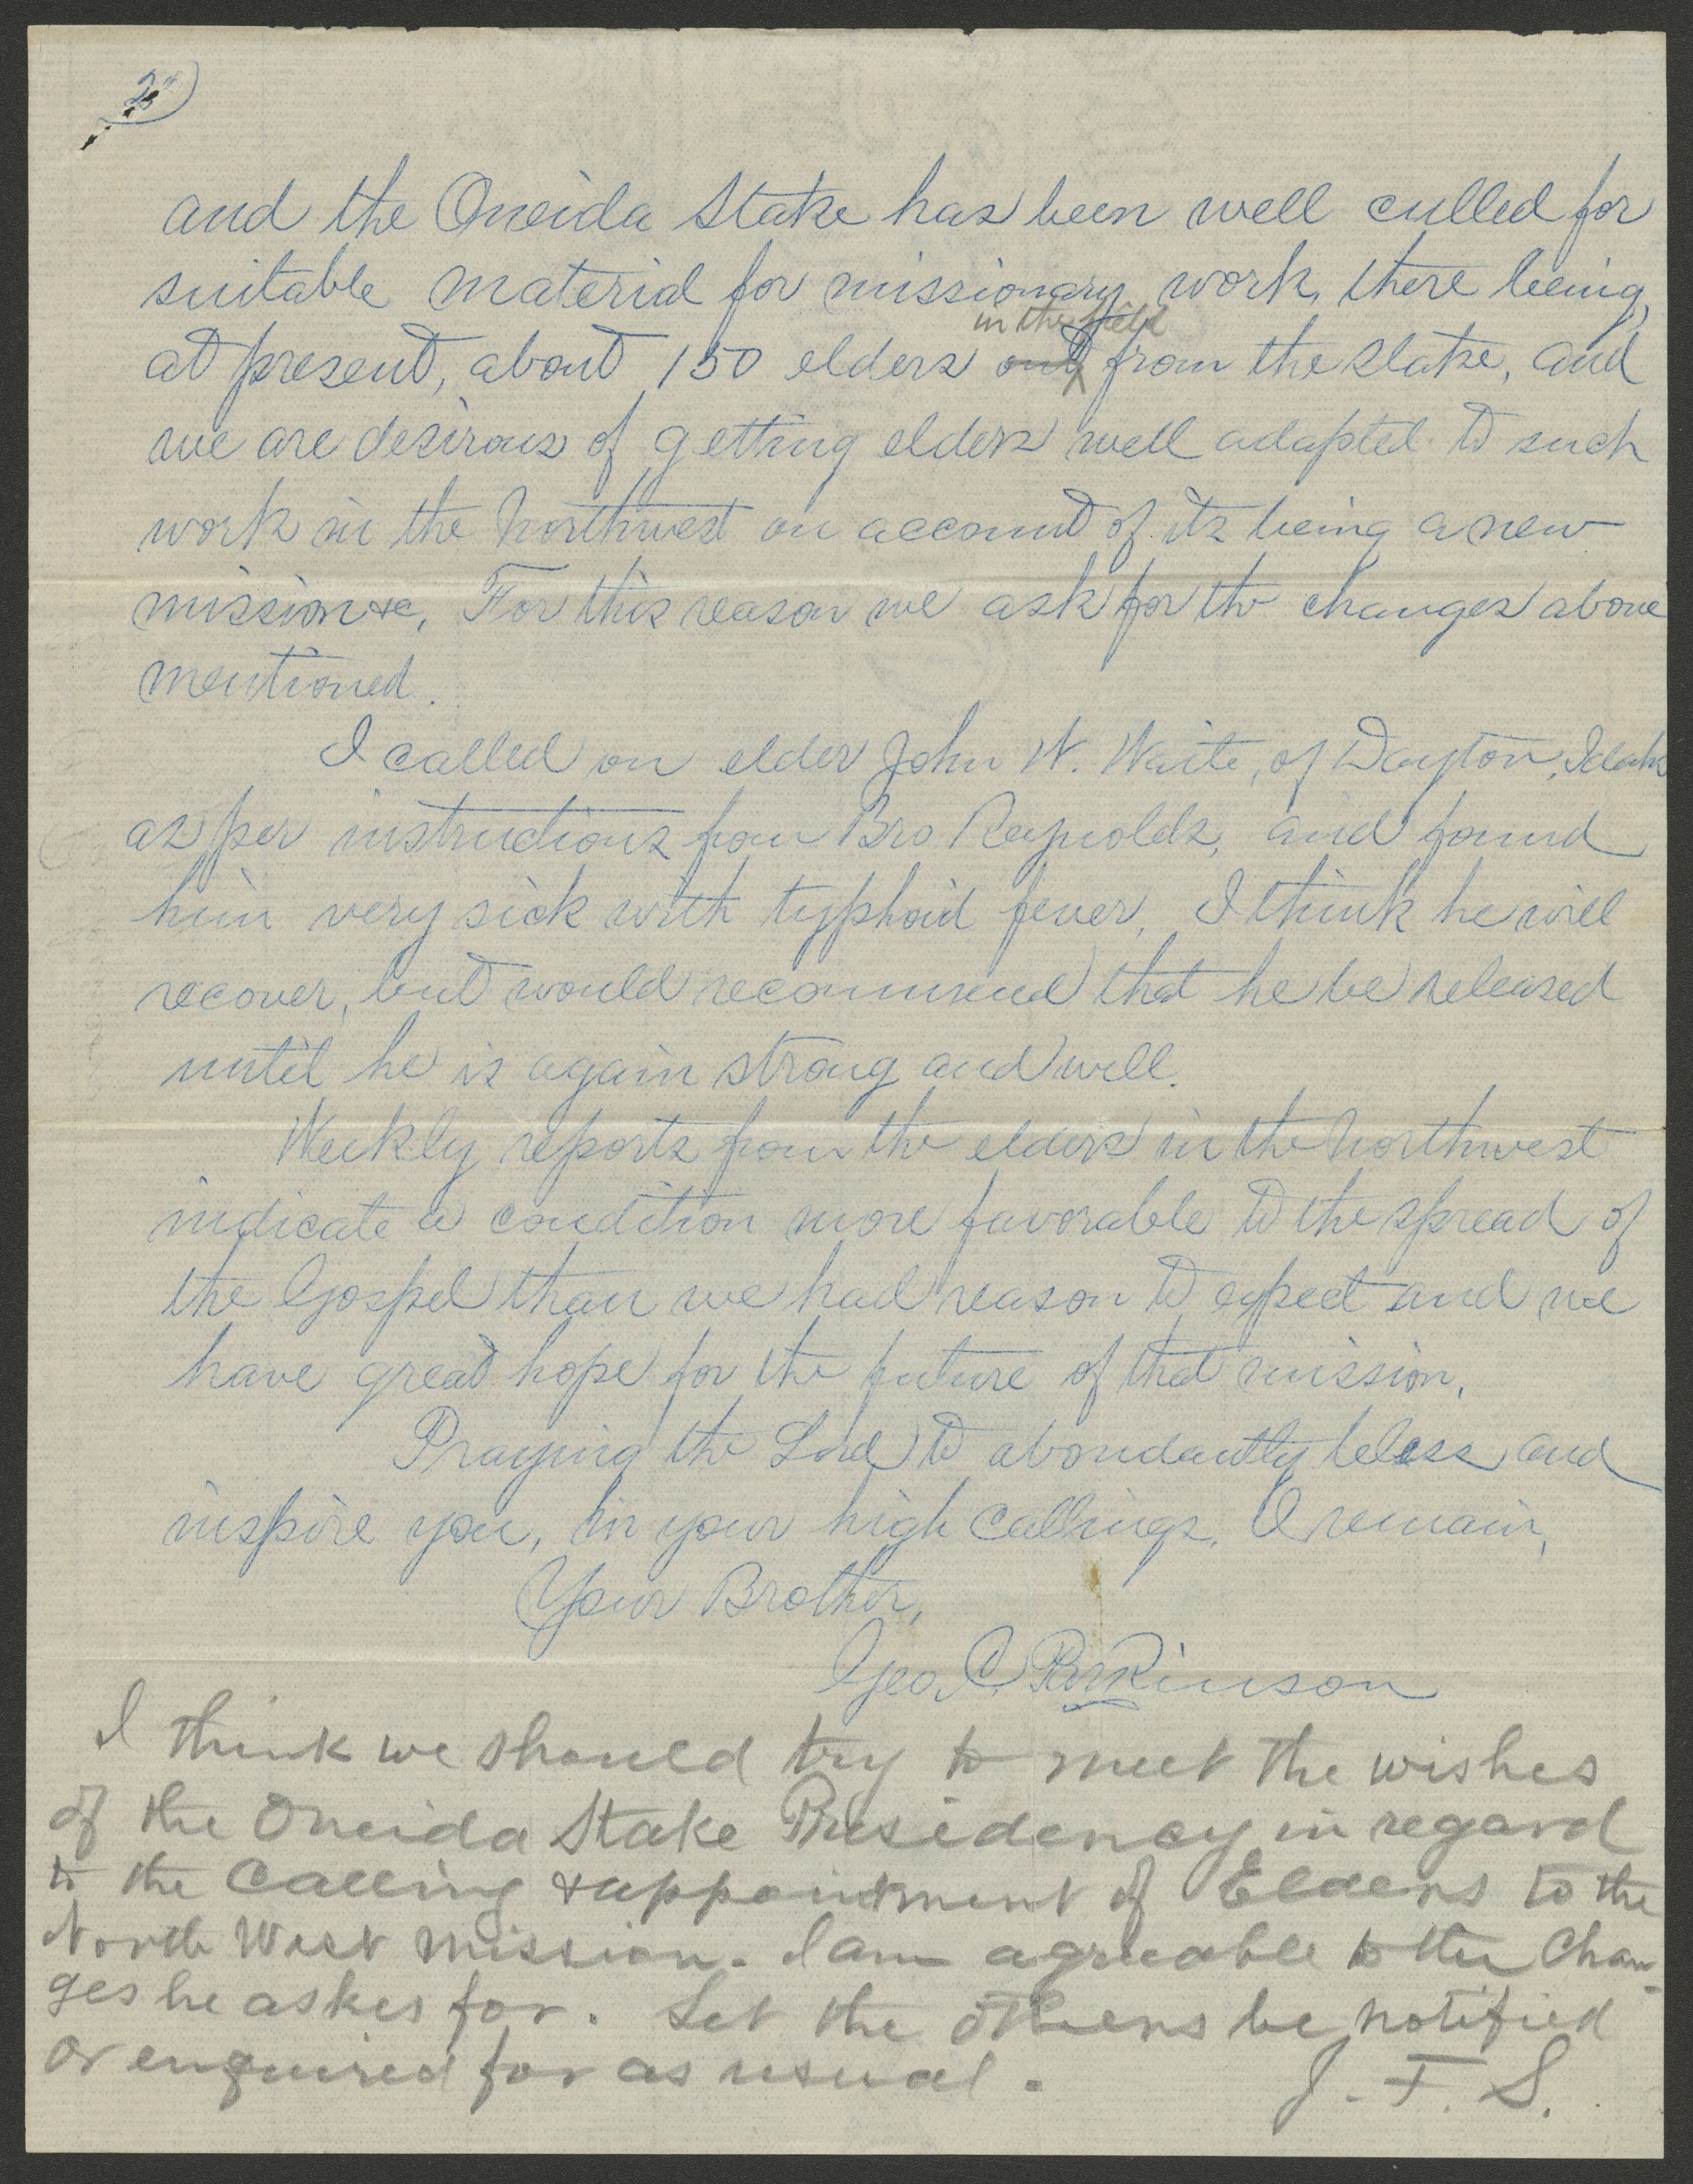 2"
and the Oneida Stake has been well culled for
suitable material for missionary work, there being,
in the field
at present, about 150 elders out from the stake, and
we are desirous of getting elders well adapted to such
work in the Northwest on account of its being a new
mission &c, For this reason we ask for the changes above
mentioned.
I called on elder John W. Waite, of Dayton, Idaho
as per instructions from Bro Reynolds, and found
him very sick with typhoid fever, I think he will
recover, but would recommend that he be released
until he is again strong and well.
Weekly reports from the elders in the Northwest
indicate a condition more favorable to the spread of
the Gospel than we had reason to expect and we
have great hope for the future of that mission,
Praying the Lord to abondantly beless and
inspire you, in your high callings, I remain,
Your Brother,
Geo. C. Parkinson
I think we should try to meet the wishes
of the Oneida Stake Presidency in regard
to the Calling & appointment of Elders to the
North West mission. I am agreeable to the Chan-
ges he askes for. Let the others be notified
or enquired for as usual.    J. F. S.